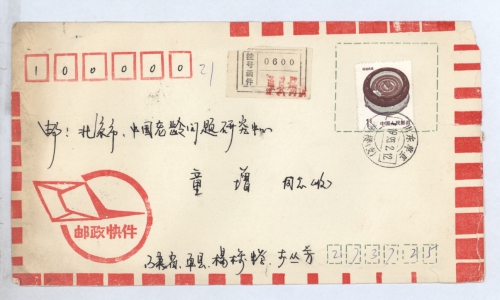 100000
挂号函件
0600
中国人民邮政
邮:北京市,中国老龄问题研究中心
童增 同志收
邮政快件
山东省,单县,杨楼
273725